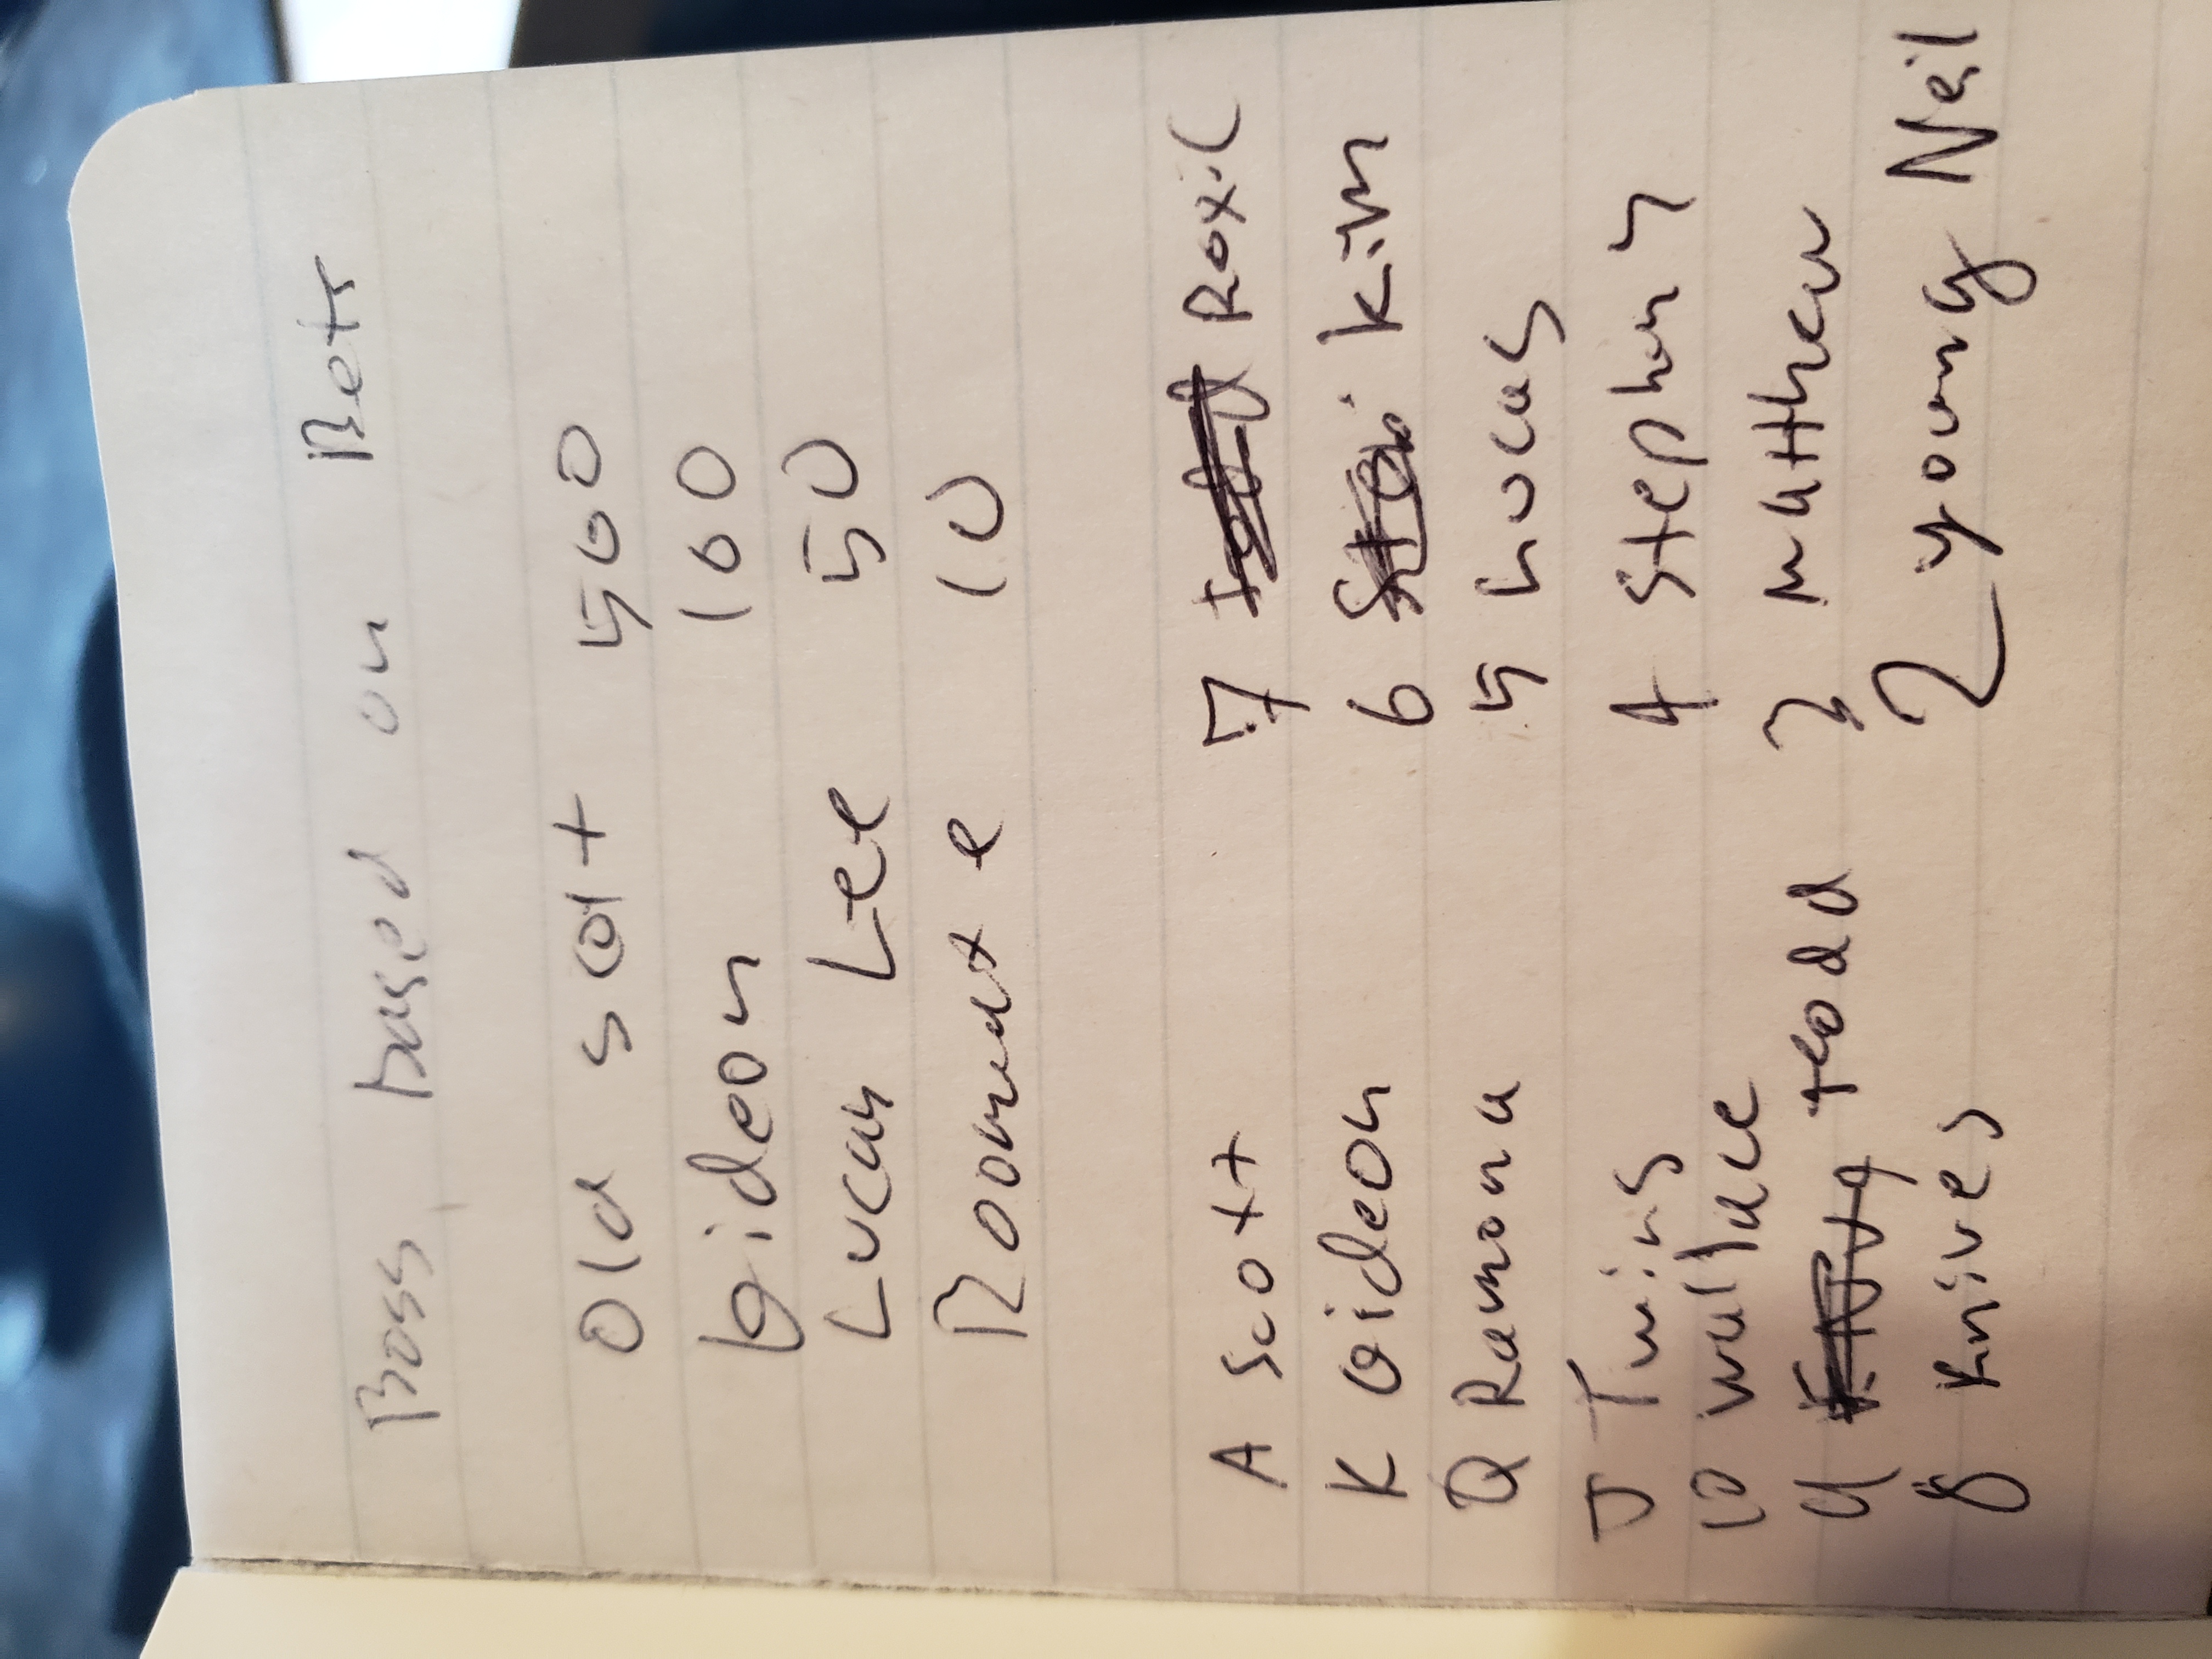 Boss based on Bets
Old scott 500
Gideon 100
Lucas Lee 50
Roomate 10
A Scott
K Gideon
Q Ramona
J Twins
10 Wallace
9 Todd
8 Knives
7 Todd Roxie
6 Kim
5 Lucas
4 Stephen
3 Matthew
2 young Neil